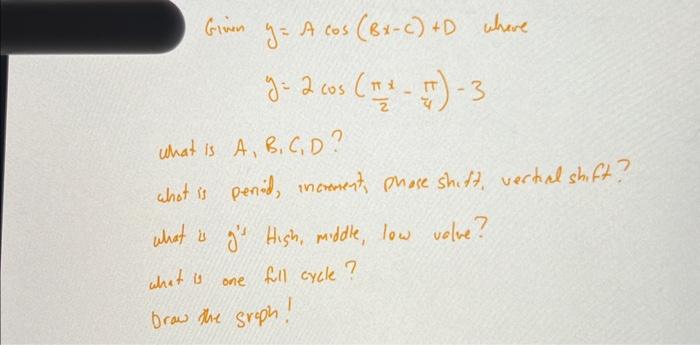 Given y = A cos (Bx-C) +D where
y = 2 cos (πx/2 - π/4) - 3
what is A, B, C, D?
what is period, increment, phase shift, vertical shift?
what is y's High, middle, low value?
what is one full cycle?
Draw the graph!